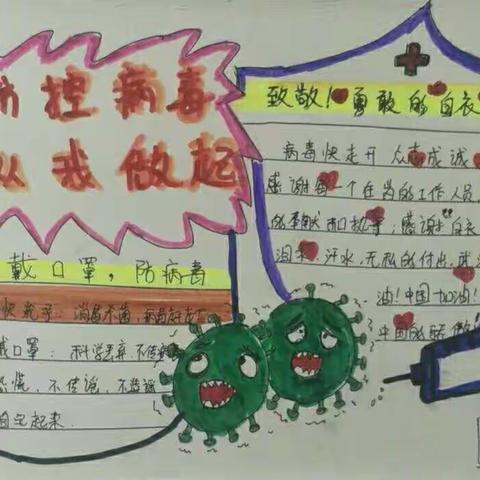 防控病毒
从我做起
戴口罩，防病毒
消毒杀菌，
戴口罩：科学丢弃不传
恐慌，不传谣，不造谣
起来．
致敬！勇敢的白衣
病毒快走开 众志成诚
感谢每一个在岗的工作人员，
的奉献和故事；感谢“白衣
泪水，汗水，无私的付出，武
油！中国加油！
中国的骄傲”